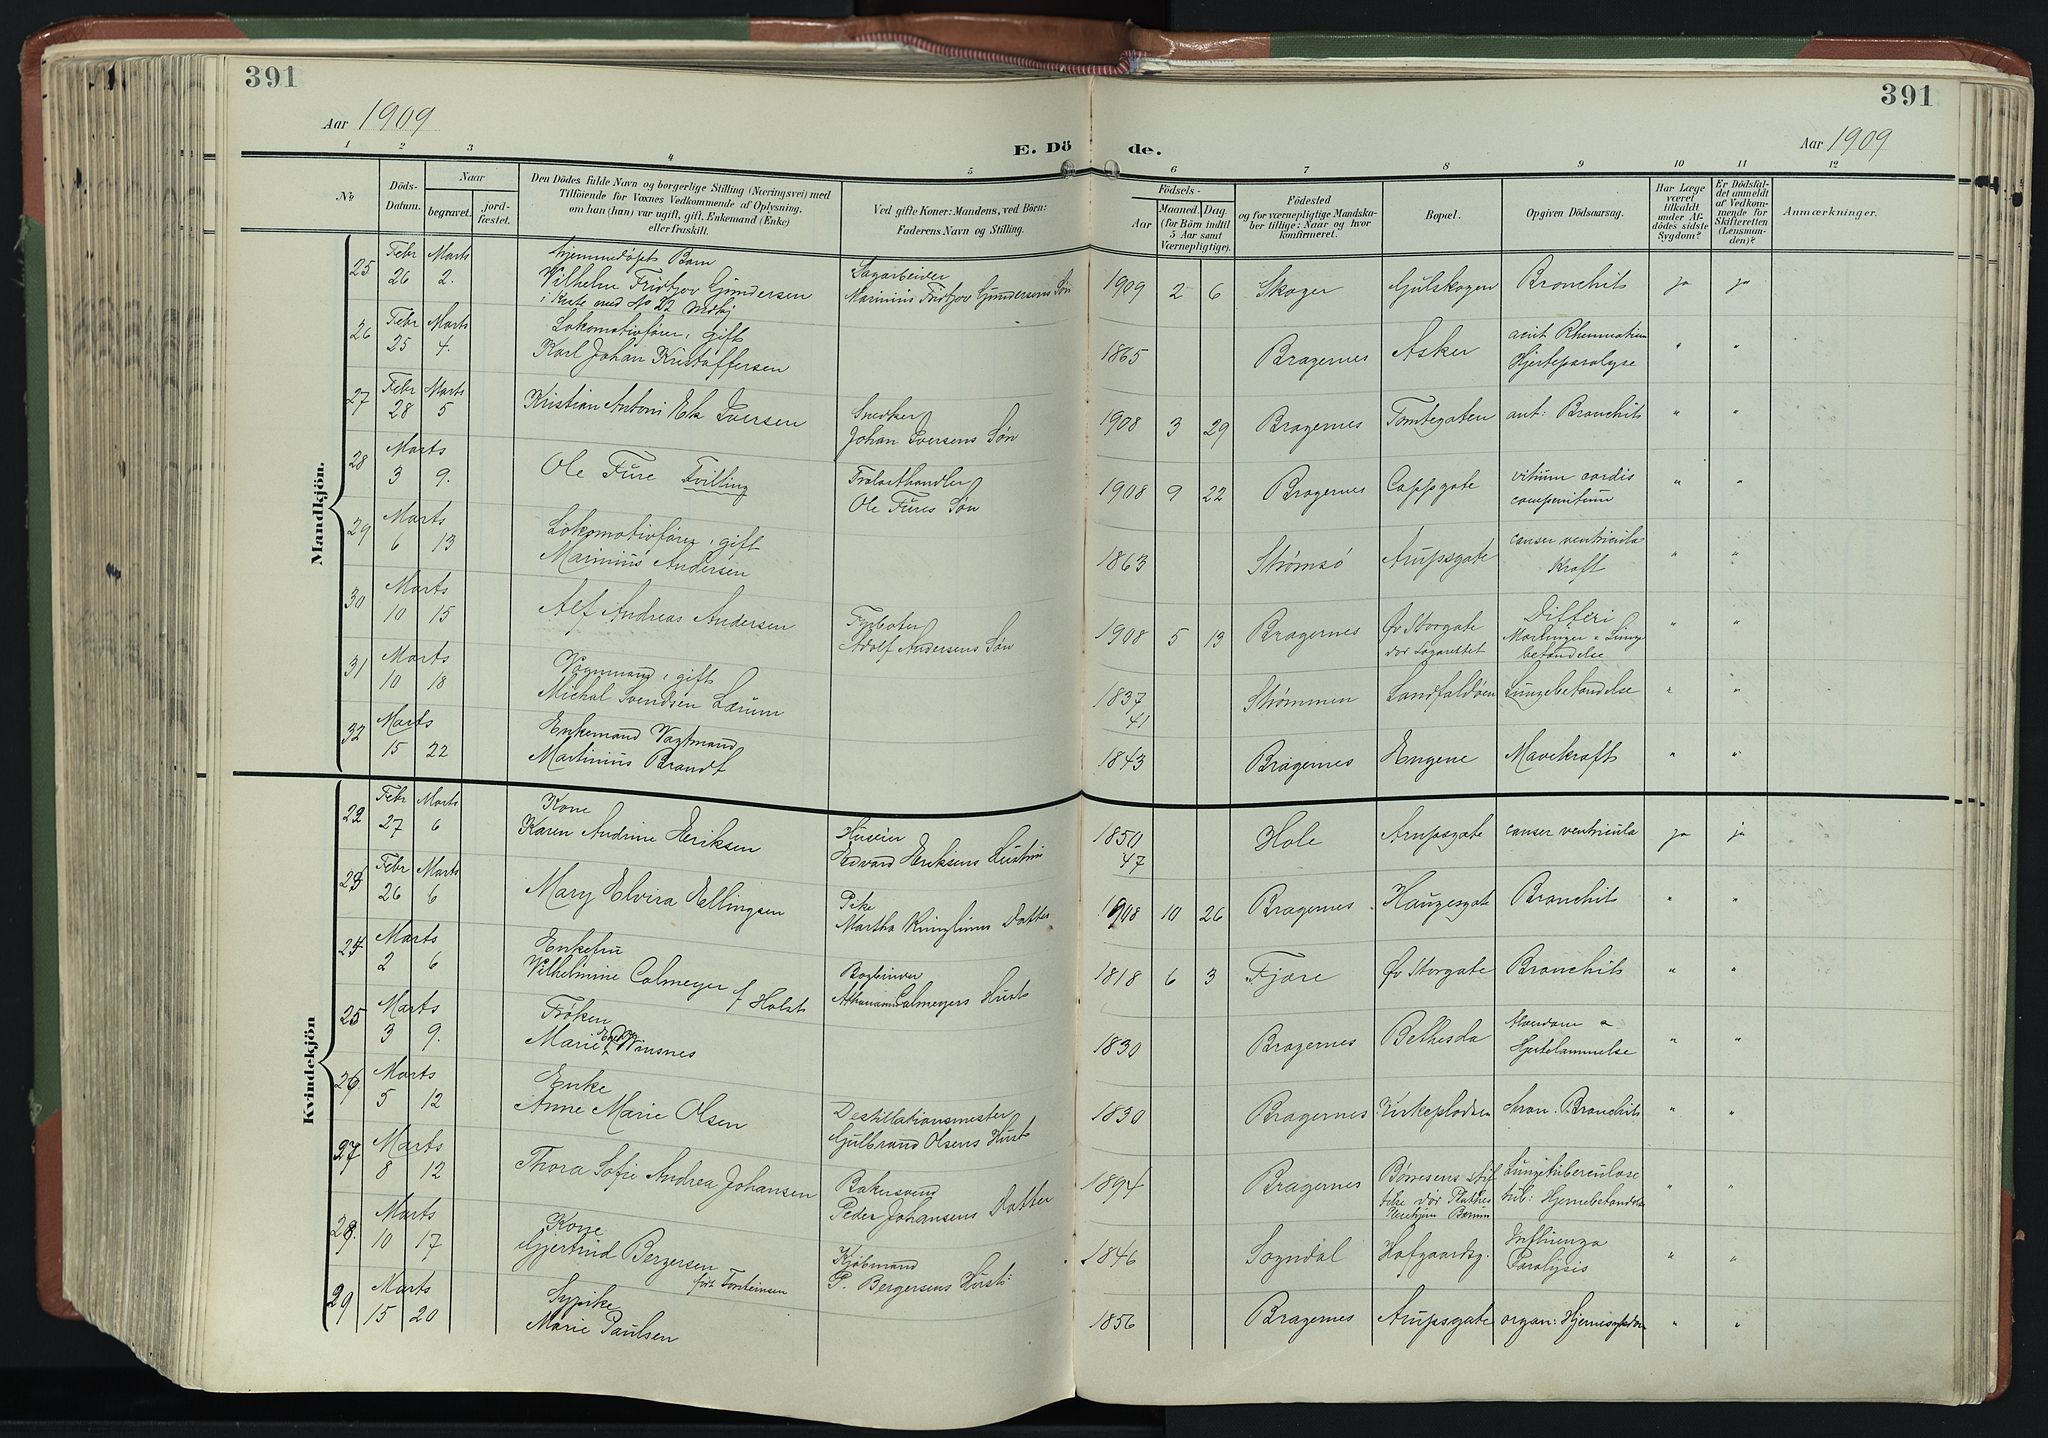 391
391
Aar 1909
Aar 1909
E. Dö de.
1 2 3 4 5 6 7 8 9 10 11 12
No.
Döds-Datum.
Naar
begravet.
jord-fæstet.
Den Dödes fulde Navn og borgerlige Stilling (Næringsvei) med
Tilföiende for Voxnes Vedkommende af Oplysning,
om han (hun) var ugift, gift, Enkemand (Enke)
eller fraskilt.
Ved gifte Koner: Mandens, ved Börn:
Faderens Navn og Stilling.
Födsels-
Aar
Maaned. Dag.
(for Börn indtil
5 Aar samt
Værnepligtige).
Födested
og for værnepligtige Mandska-
ber tillige: Naar og hvor
konfirmeret.
Bopæl.
Opgiven Dödsaarsag.
Har Læge
været
tilkaldt
under Af-
dödes sidste
Sygdom?
Er Dödsfal-
det anmeldt
af Vedkom-
mende for
Skifteretten
(Lensman-
den)?
Anmærkninger.
Mandkjön.
25 Febr 26 Marts 2. Hjemmedøpt Barn
Vilhelm Fridtjov Gundersen
i Kiste med No 22
Sagarbeider
Marinius Fridtjov Gundersens Søn 1909 2 6 Skoger Gulskogen Bronchit ja ja
26 Febr 25 Marts 4. Lokomotivfører, gift
Karl Johan Kristoffersen 1865 Bragernes Asker Hjerteparalyse " "
27 Febr 28 Marts 5 Kristian Antoni Ek Iversen
Snedker
Johan Iversens Søn 1908 3 29 Bragernes Tomtegaten Bronchit " "
28 Marts 3 9. Ole Fure Tvilling
Trælasthandler
Ole Fures Søn 1908 9 22 Bragernes Cappsgate vitium cordis " "
29 Marts 6 13 Lokomotivfører, gift
Marinius Andersen 1863 Strømsø Arupsgate canser ventricula
Kræft " "
30 Marts 10 15 Alf Andreas Andersen
Fyrbøter
Adolf Andersens Søn 1908 5 13 Bragernes Øv Storgate
død Lazarettet
Differi
Mæslinger & Lunge
betændelse " "
31 Marts 10 18 Vognmand, gift
Michal Svendsen Lærum 1837
41 Strømmen Landfaldøen Lungebetændelse " "
32 Marts 15 22 Enkemand Vagtmand
Martinius Brandt 1843 Bragernes Engene Mavekræft " "
Kvindekjön
22 Febr 27 Marts 6 Kone
Karen Andrine Eriksen
Huseier
Edvard Eriksens Hustru 1850
47 Hole Arupsgate canser ventricula ja ja
23 Febr 26 Marts 6 Mary Elvira Ellingsen
Pike
Martha Datter 1908 10 26 Bragernes Haugesgate Bronchit " "
24 Marts 2 6 Enkefru
Vilhelmine Calmeyer f Holst
Bogbinder
Calmeyers Hust 1818 6 3 Fjære Øv Storgate Bronchit " "
25 Marts 3 9. Frøken
Marie Winsnes 1830 Bragernes Bethesda Alderdom &
Hjertelammelse " "
26 Marts 5 12 Enke
Anne Marie Olsen
Destillationsmester
Gulbrand Olsens Hust 1830 Bragernes Kirkepladsen kron. Bronchit " "
27 Marts 8 12 Thora Sofie Andrea Johansen
Bakersvend
Peder Johansens Datter 1894 Bragernes Børresens Stif
telse død
Lungetuberculose
tub: Hjernebetændelse " "
28. Marts 10 17 Kone
Gjertrud Bergersen
født Torsteinsen
Kjøbmand
P. Bergersens Hust: 1846 Sogndal Hofgaardsg. Influenza
Paralysis " "
29 Marts 15 20 Sypike
Marie Paulsen 1856 Bragernes Arupsgate organ: Hjernesygdom " "